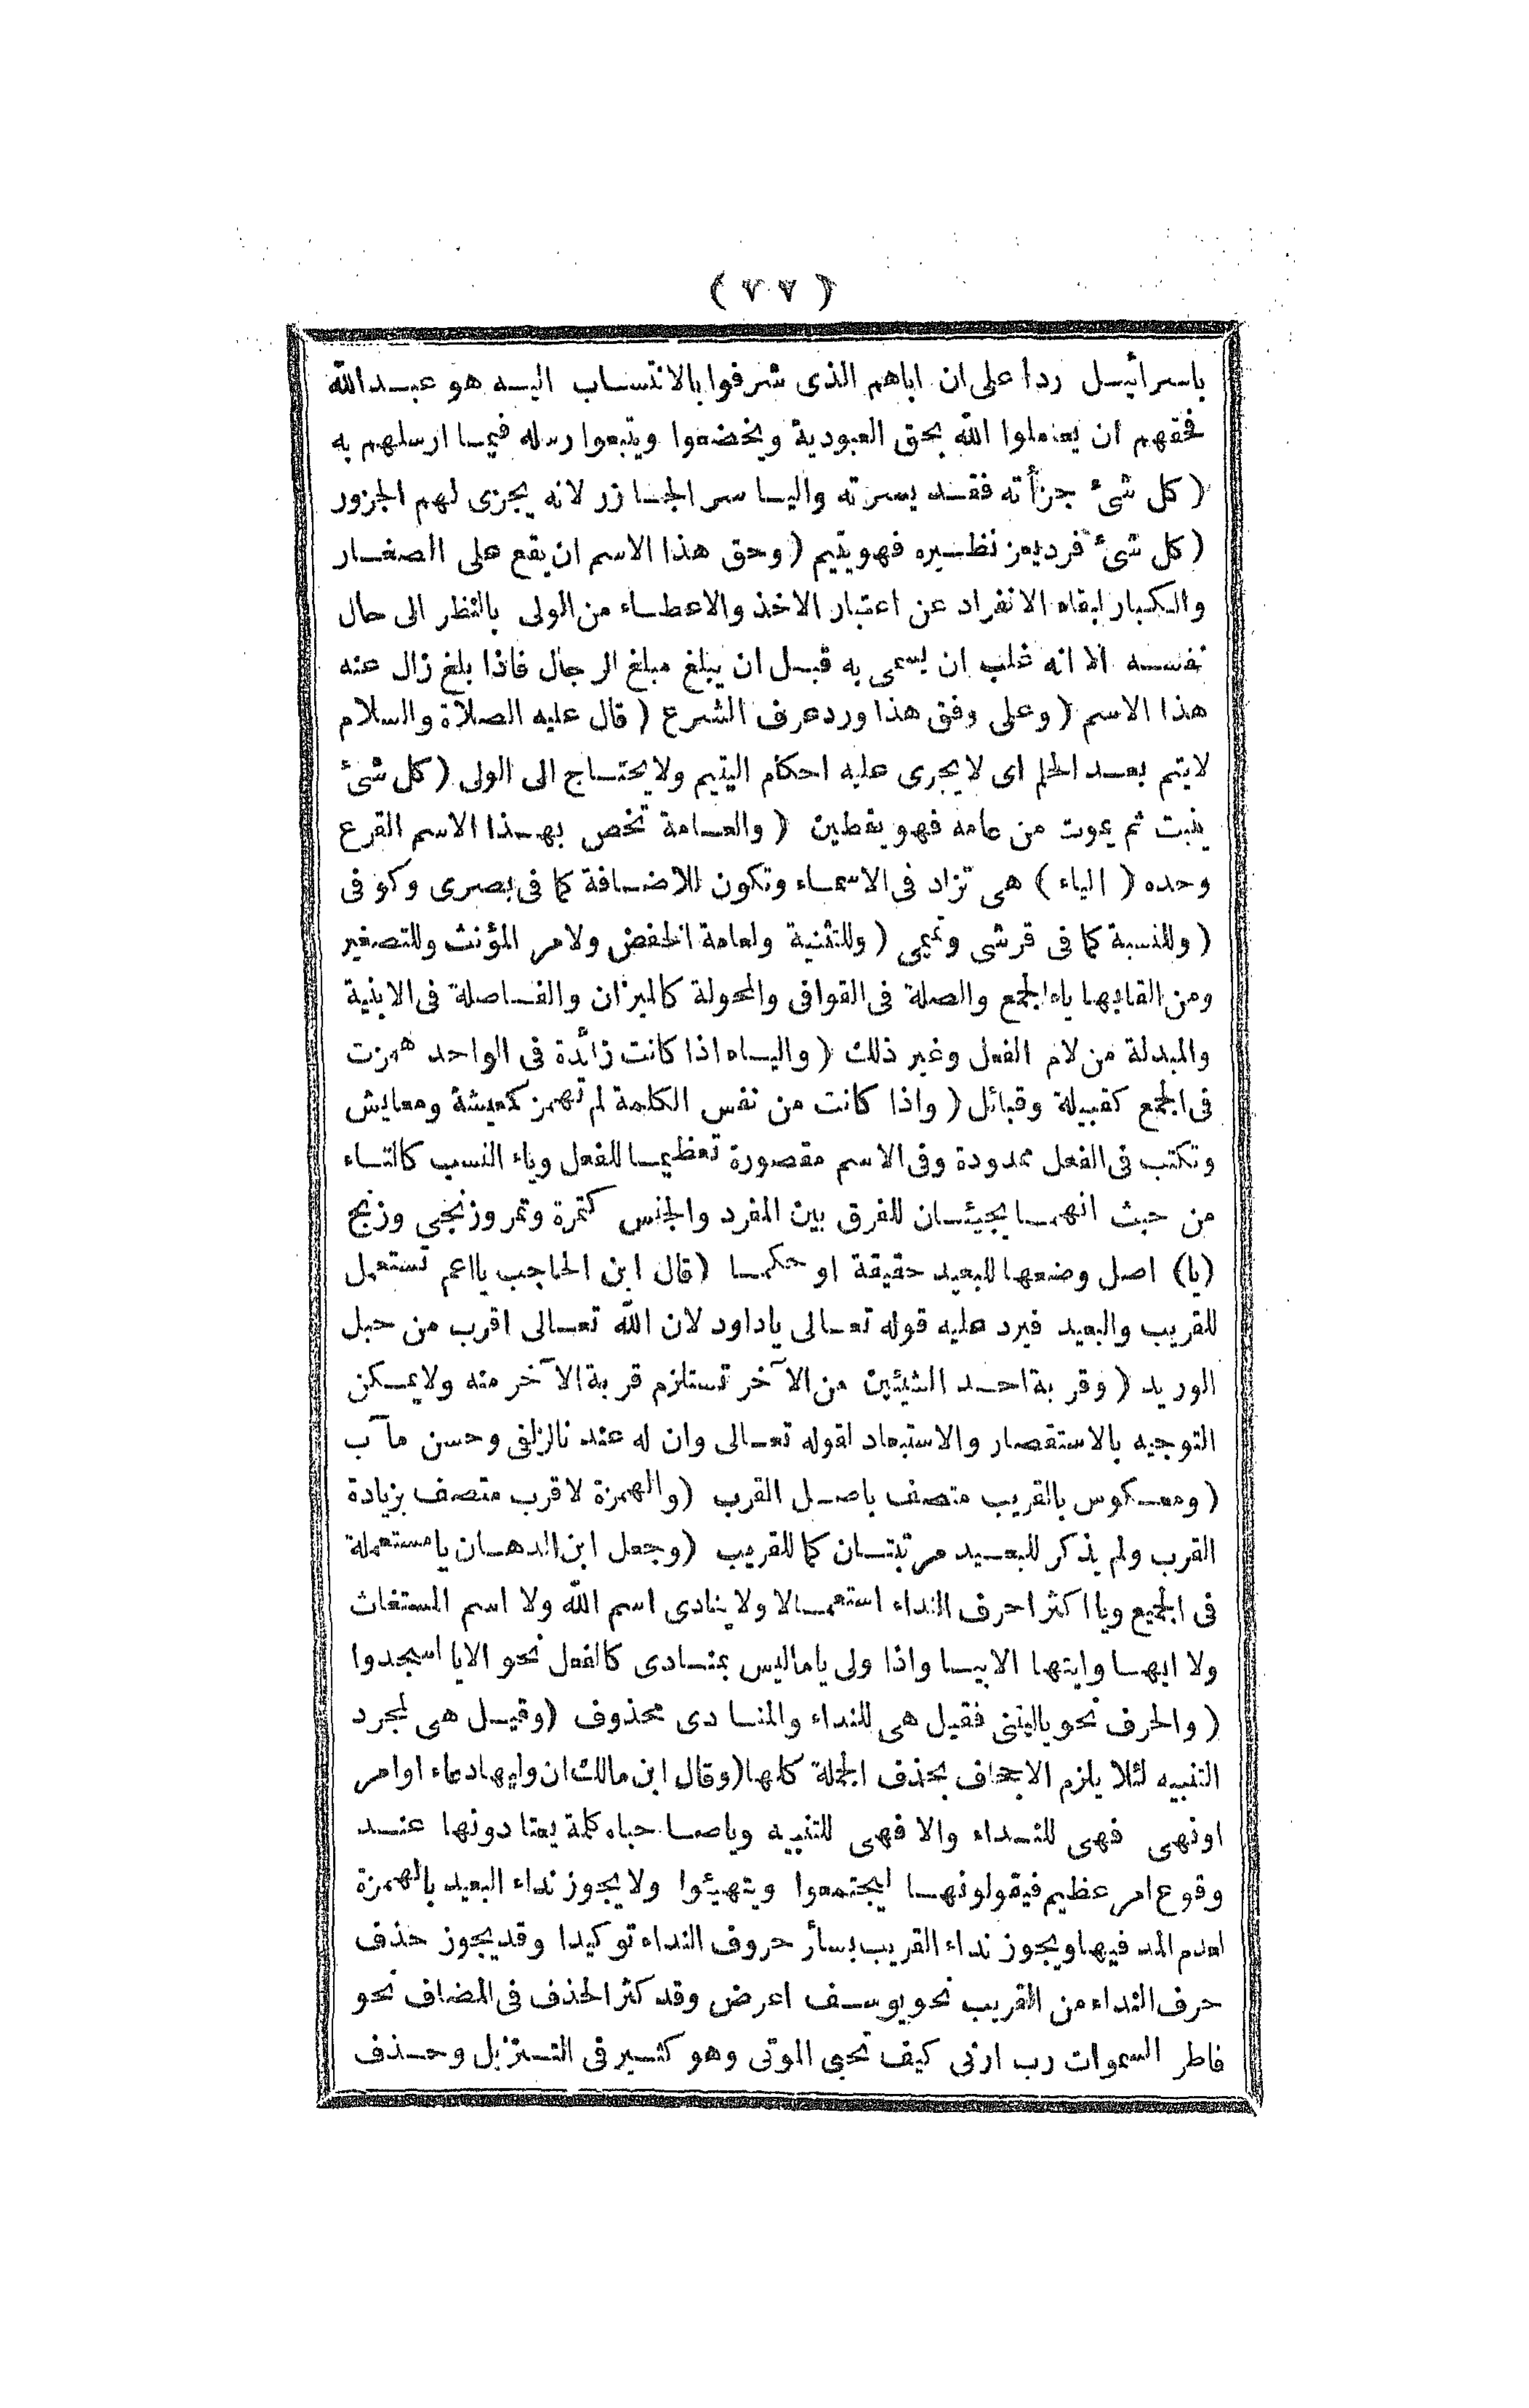 ( ٧٧ )
باسرائيل ردا على ان اباهم الذى شرفوا بالانتساب اليه هو عبد الله
فحقهم ان يعاملوا الله بحق العبودية ويخضعوا ويتبعوا رسله فيما ارسلهم به
( كل شئ جزأته فقد يسرته والياسر الجازر لانه يجزى لهم الجزور
( كل شئ فرد يعز نظيره فهو يتيم ( وحق هذا الاسم ان يقع على الصغار
والكبار لبقاء الانفراد عن اعتبار الاخذ والاعطاء من الولى بالنظر الى حال
نفسه الا انه غلب ان يسمى به قبل ان يبلغ مبلغ الرجال فاذا بلغ زال عنه
هذا الاسم ( وعلى وفق هذا ورد عرف الشرع ( قال عليه الصلاة والسلام
لايتم بعد الحلم اى لا يجرى عليه احكام اليتيم ولا يحتاج الى الولى ( كل شئ
ينبت ثم يموت من عامه فهو يقطين ( والعامة تخص بهذا الاسم القرع
وحده ( الياء ) هى تزاد فى الاسماء وتكون للاضافة كما فى بصرى وكوفى
( وللنسبة كما فى قرشى وتميمى ( وللتثنية ولعامة الخفض ولامر المؤنث وللتصغير
ومن القابها ياء الجمع والصلة فى القوافى والمحولة كالميزان والفاصلة فى الابنية
والمبدلة من لام الفعل وغير ذلك ( والياء اذا كانت زائدة فى الواحد همزت
فى الجمع كقبيلة وقبائل ( واذا كانت من نفس الكلمة لم تهمز كمعيشة ومعايش
وتكتب فى الفعل ممدودة وفى الاسم مقصورة تعظيما للفعل وياء النسب كالتاء
من حيث انهما يجيئان للفرق بين المفرد والجنس كتمرة وتمر وزنجى وزنج
(يا) اصل وضعها للبعيد حقيقة او حكما ( قال ابن الحاجب يا اعم تستعمل
للقريب والبعيد فيرد عليه قوله تعالى ياداود لان الله تعالى اقرب من حبل
الوريد ( وقربة احد الشيئين من الآخر تستلزم قربة الآخر منه ولا يمكن
التوجيه بالاستقصار والاستبعاد لقوله تعالى وان له عندنا لزلفى وحسن مآب
( ومعكوس بالقريب متصف باصل القرب ( والهمزة لاقرب متصف بزيادة
القرب ولم يذكر للبعيد مرتبتان كما للقريب ( وجعل ابن الدهان يا مستعملة
فى الجميع ويا اكثر احرف النداء استعمالا ولا ينادى اسم الله ولا اسم المستغاث
ولا ايها وايتها الا بيا واذا ولى يا ماليس بمنادى كالفعل نحو الايا اسجدوا
( والحرف نحو ياليتنى فقيل هى للنداء والمنادى محذوف ( وقيل هى لمجرد
التنبيه لئلا يلزم الاجحاف بحذف الجملة كلها ( وقال ابن مالك ان وليها دعاء اوامر
اونهى فهى للنداء والا فهى للتنبيه وياصباحاه كلمة يعتادونها عند
وقوع امر عظيم فيقولونها ليجتمعوا ويتهيئوا ولا يجوز نداء البعيد بالهمزة
لعدم المد فيها ويجوز نداء القريب بسائر حروف النداء توكيدا وقد يجوز حذف
حرف النداء من القريب نحو يوسف اعرض وقد كثر الحذف فى المضاف نحو
فاطر السموات رب ارنى كيف تحيى الموتى وهو كثير فى التنزيل وحذف